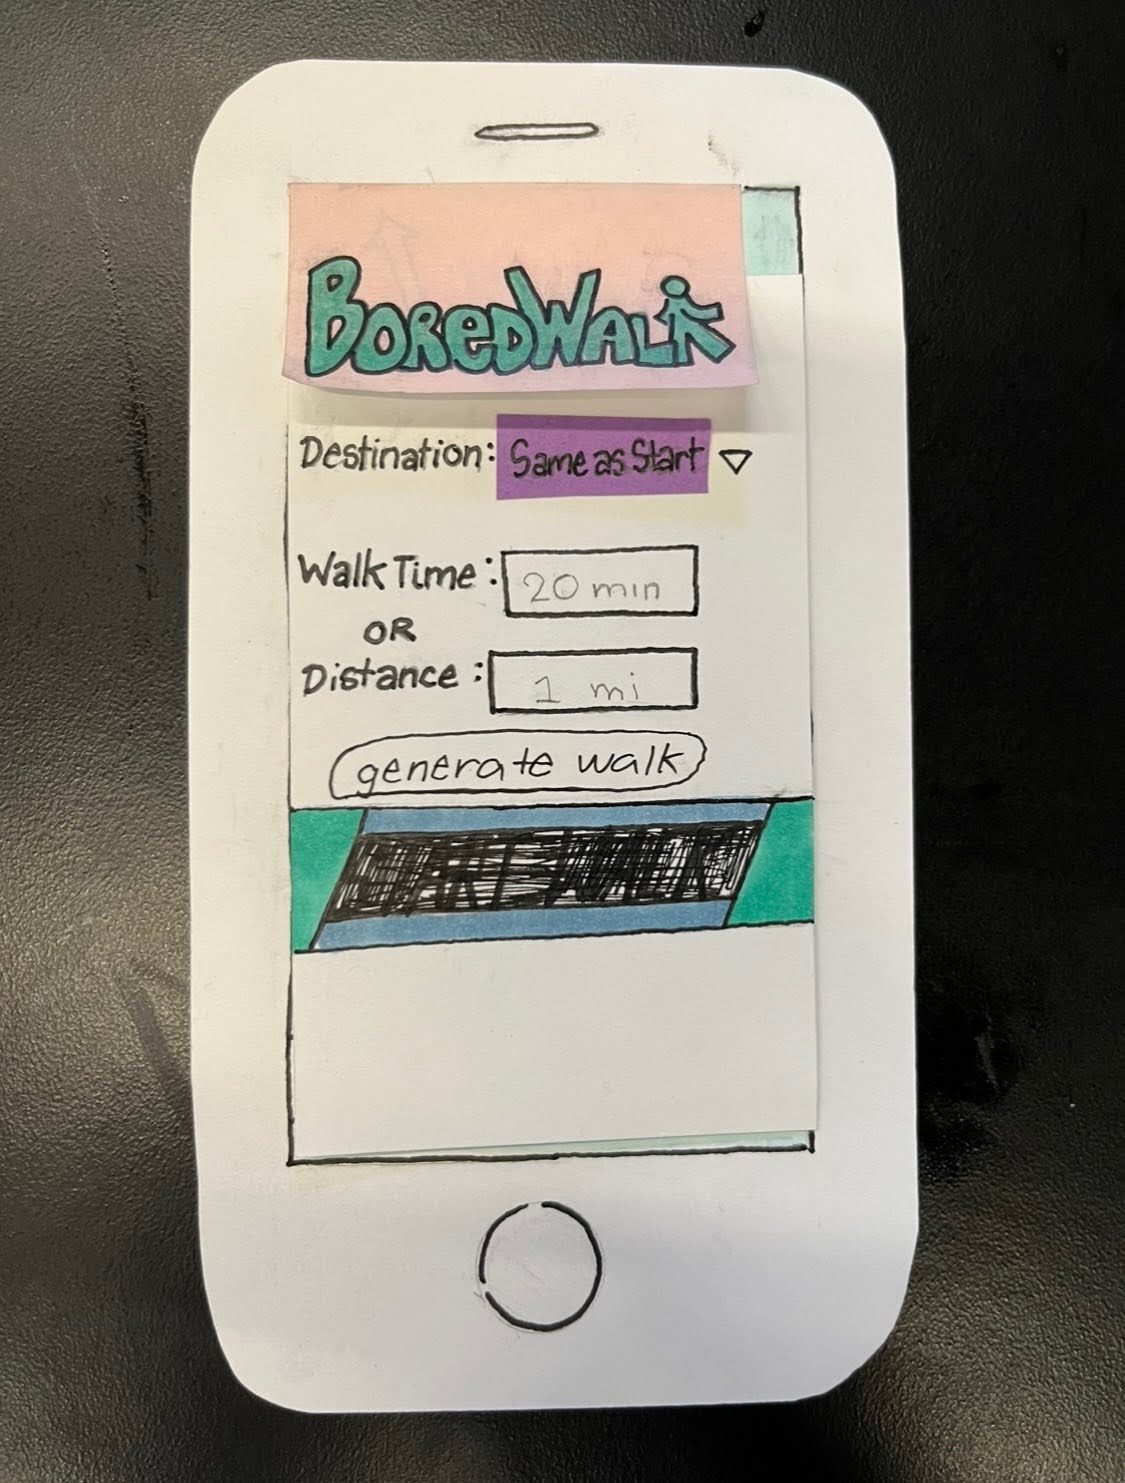 BOREDWALK
Destination: Same as Start
Walk Time: 20 min
OR
Distance: 1 mi
generate walk